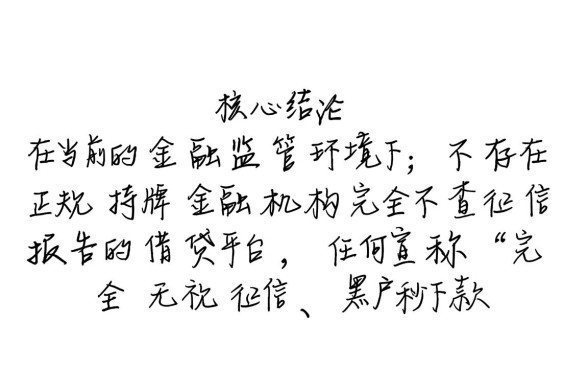 核心结论
在当前的金融监管环境下；不存在
正规持牌金融机构完全不查征信
报告的借贷平台，任何宣称“完
全无视征信、黑户秒下款